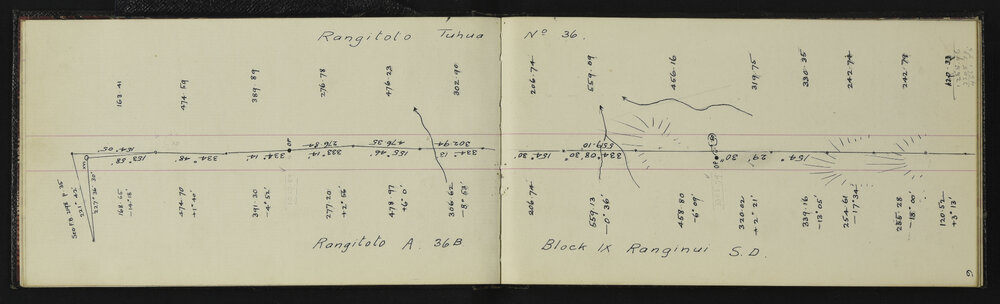 Rangitoto Tuhua No 36.
168.41
474.59
389.89
276.78
476.23
302.90
206.74
559.09
456.16
319.75
330.35
242.74
242.79
120.33
164.05
276.84
476.35
302.94
559.10
153° 58'
334° 48'
334° 14'
333° 14'
155° 46'
334° 13'
154° 30'
334° 08' 30"
154° 29' 30"
331° 43'
227° 36' 30"
168.65
-14° 15'
474.70
+1° 40'
391.30
-4° 52'
277.20
+2° 56'
478.97
+6° 0'
306.62
-8° 53'
206.74
559.13
-0° 36'
458.80
-6° 09'
320.02
+2° 21'
339.16
-13° 05'
254.61
-17° 34'
255.28
-18° 00'
120.52
+3° 13'
Rangitoto A 36B
Block IX Ranginui S.D.